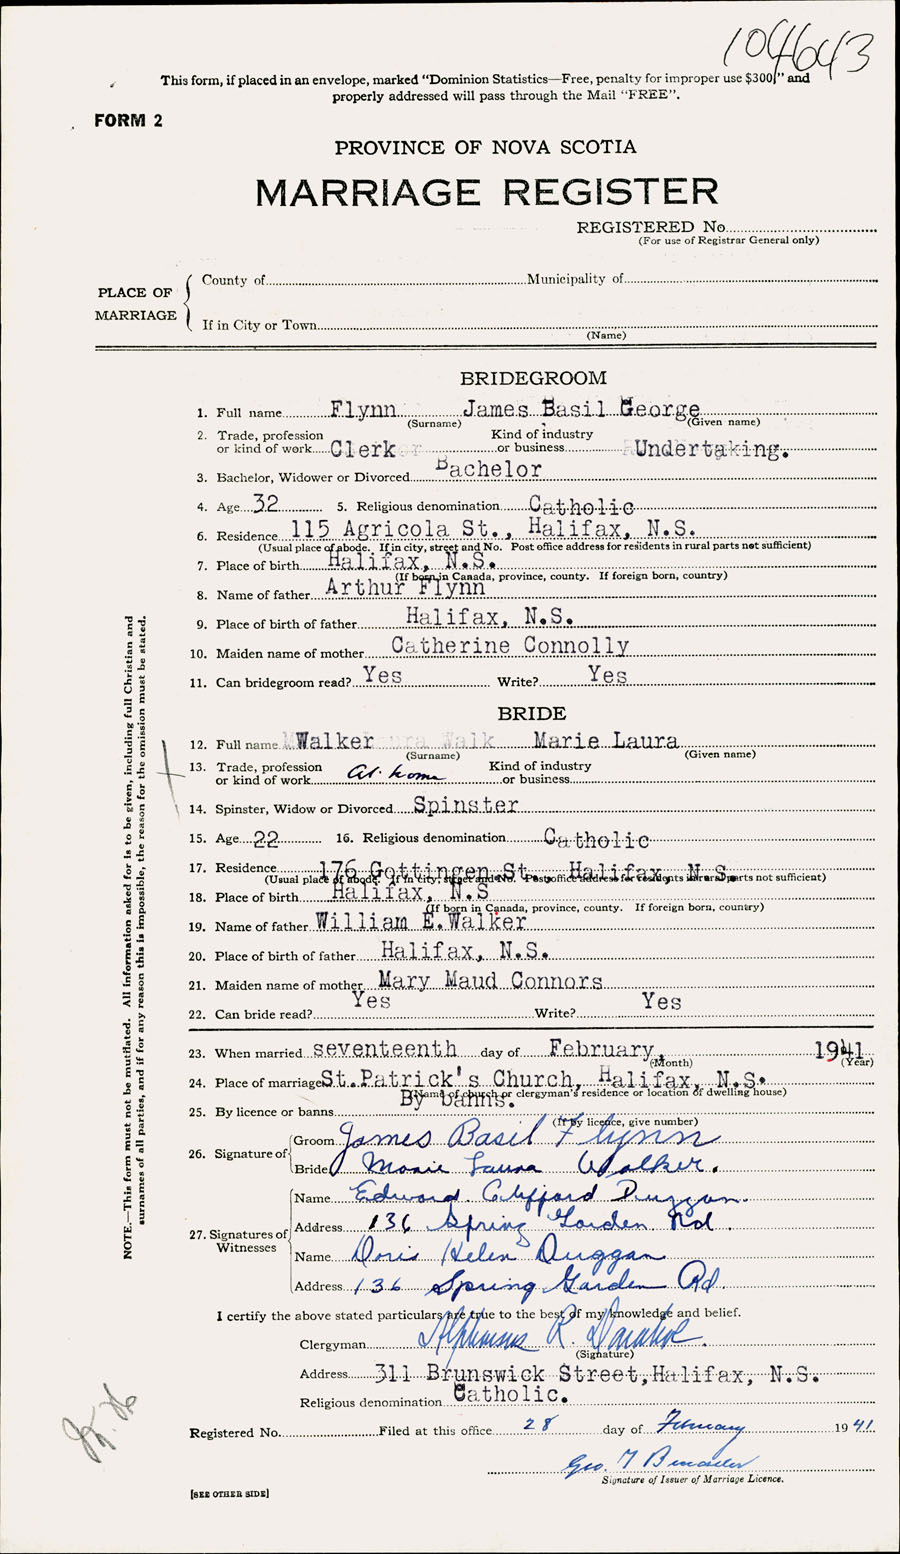 104643
This form, if placed in an envelope, marked "Dominion Statistics—Free, penalty for improper use $300," and
properly addressed will pass through the Mail "FREE".
FORM 2
PROVINCE OF NOVA SCOTIA
MARRIAGE REGISTER
REGISTERED No
(For use of Registrar General only)
PLACE OF MARRIAGE
County of Municipality of
If in City or Town
(Name)
BRIDEGROOM
1. Full name Flynn James Basil George
(Surname) (Given name)
2. Trade, profession Kind of industry
or kind of work Clerk or business Undertaking.
3. Bachelor, Widower or Divorced Bachelor
4. Age 32 5. Religious denomination Catholic
6. Residence 115 Agricola St., Halifax, N.S.
(Usual place of abode. If in city, street and No. Post office address for residents in rural parts not sufficient)
7. Place of birth Halifax, N.S.
(If born in Canada, province, county. If foreign born, country)
8. Name of father Arthur Flynn
9. Place of birth of father Halifax, N.S.
10. Maiden name of mother Catherine Connolly
11. Can bridegroom read? Yes Write? Yes
BRIDE
12. Full name Walker Marie Laura
(Surname) (Given name)
13. Trade, profession Kind of industry
or kind of work at home or business
14. Spinster, Widow or Divorced Spinster
15. Age 22 16. Religious denomination Catholic
17. Residence 176 Gottingen St. Halifax, N.S.
(Usual place of abode. If in city, street and No. Post office address for residents in rural parts not sufficient)
18. Place of birth Halifax, N.S
(If born in Canada, province, county. If foreign born, country)
19. Name of father William E.Walker
20. Place of birth of father Halifax, N.S.
21. Maiden name of mother Mary Maud Connors
22. Can bride read? Yes Write? Yes
23. When married seventeenth day of February, 1941
(Month) (Year)
24. Place of marriage St.Patrick's Church, Halifax, N.S.
(Name of church or clergyman's residence or location of dwelling house)
25. By licence or banns By banns.
(If by licence, give number)
26. Signature of
Groom James Basil Flynn
Bride Marie Laura Walker.
27. Signatures of Witnesses
Name Edward Clifford Duggan.
Address 136 Spring Garden Rd.
Name Doris Helen Duggan
Address 136 Spring Garden Rd.
I certify the above stated particulars are true to the best of my knowledge and belief.
Clergyman Alphonsus R. Donahoe.
(Signature)
Address 311 Brunswick Street,Halifax, N.S.
Religious denomination Catholic.
Registered No. Filed at this office 28 day of February 1941
Geo. T
Signature of Issuer of Marriage Licence.
[SEE OTHER SIDE]
NOTE.—This form must not be mutilated. All information asked for is to be given, including full Christian and
surnames of all parties, and if for any reason this is impossible, the reason for the omission must be stated.